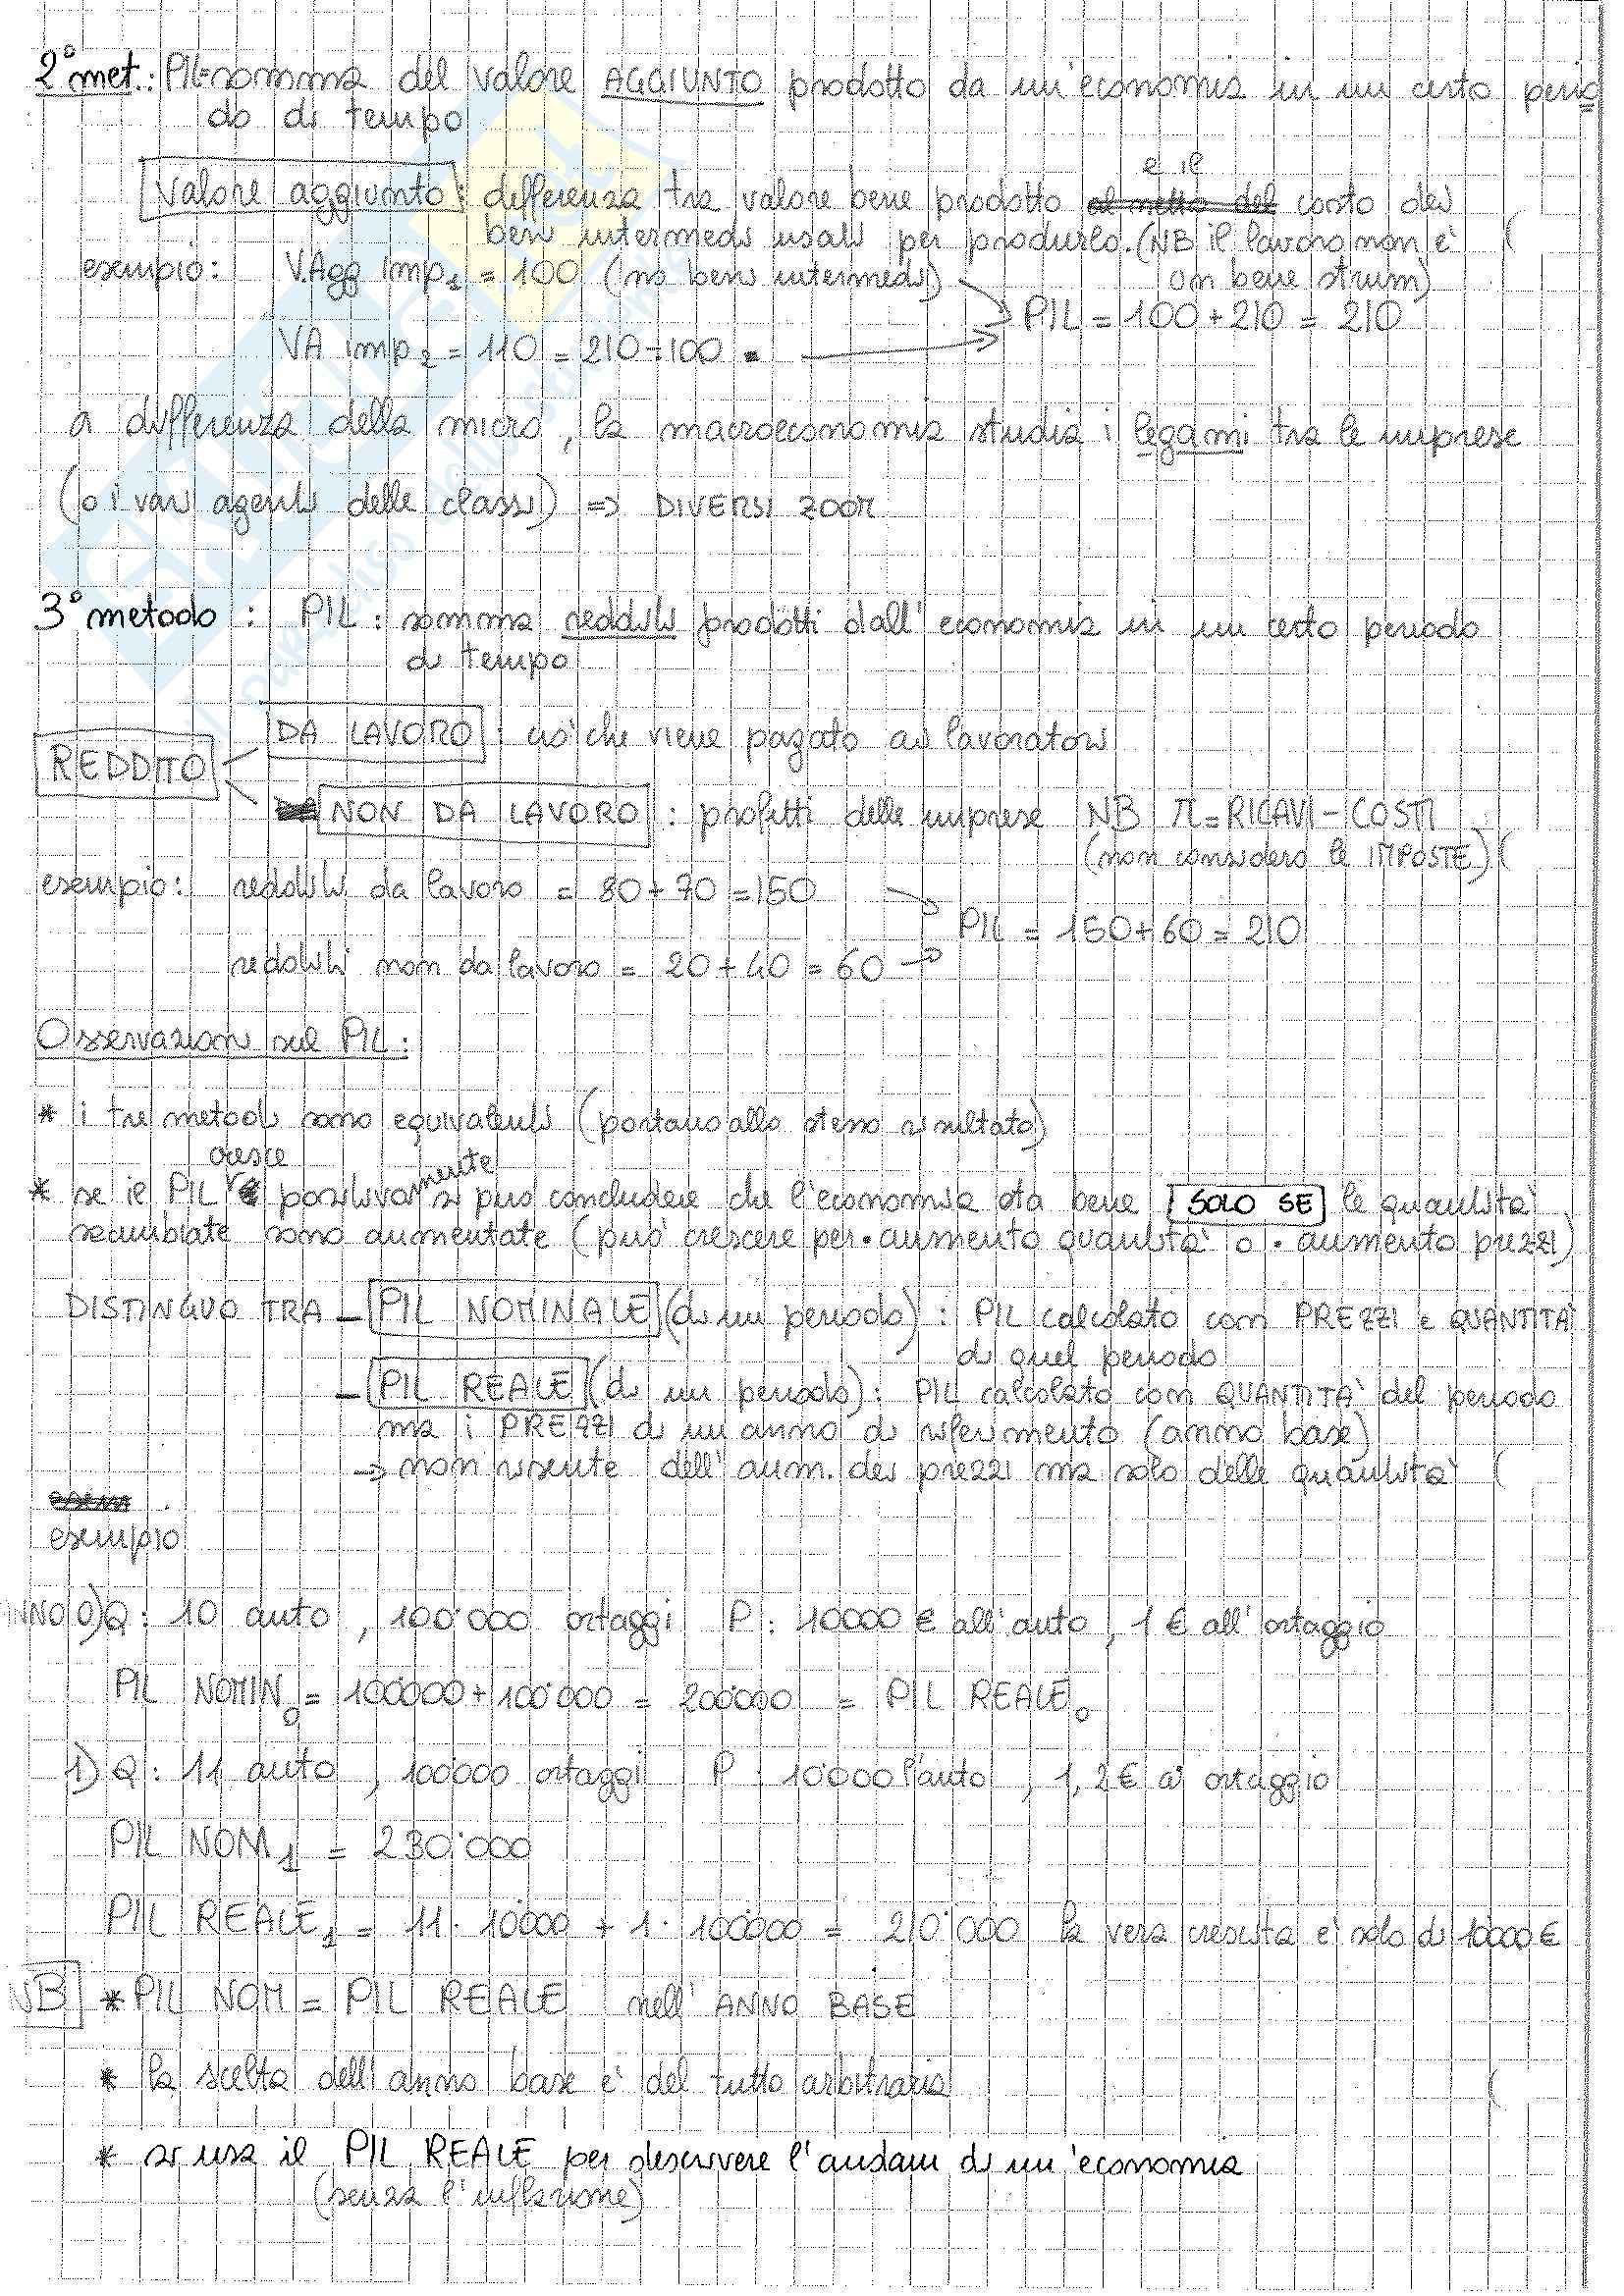 2° met.: PIL=somma del valore AGGIUNTO prodotto da un'economia in un certo perio
do di tempo
e il
Valore aggiunto: differenza tra valore bene prodotto costo dei
beni intermedi usati per produrlo. (NB il lavoro non è
esempio: V.Agg imp1 = 100 (no beni intermedi) un bene strum)
PIL = 100 + 210 = 210
VA imp2 = 110 = 210 - 100
a differenza della micro, la macroeconomia studia i legami tra le imprese
(o i vari agenti delle classi) => DIVERSI ZOOM
3° metodo: PIL: somma redditi prodotti dall'economia in un certo periodo
di tempo
DA LAVORO: ciò che viene pagato ai lavoratori
REDDITO
NON DA LAVORO: profitti delle imprese NB π = RICAVI - COSTI
(non considero le IMPOSTE)
esempio: redditi da lavoro = 80 + 70 = 150
PIL = 150 + 60 = 210
redditi non da lavoro = 20 + 40 = 60
Osservazioni sul PIL:
* i tre metodi sono equivalenti (portano allo stesso risultato)
cresce
* se il PIL positivamente si può concludere che l'economia sta bene SOLO SE le quantità
scambiate sono aumentate (può crescere per • aumento quantità o • aumento prezzi)
DISTINGUO TRA - PIL NOMINALE (di un periodo): PIL calcolato con PREZZI e QUANTITA'
di quel periodo
- PIL REALE (di un periodo): PIL calcolato con QUANTITA' del periodo
ma i PREZZI di un anno di riferimento (anno base)
→ non risente dell'aum. dei prezzi ma solo delle quantità
esempio
NNO 0) Q: 10 auto, 100'000 ortaggi P: 10000 € all'auto, 1 € all'ortaggio
PIL NOMIN0 = 100'000 + 100'000 = 200'000 = PIL REALE0
1) Q: 11 auto, 100'000 ortaggi P: 10'000 l'auto, 1,2 € a ortaggio
PIL NOM1 = 230'000
PIL REALE1 = 11 · 10'000 + 1 · 100'000 = 210'000 la vera crescita è solo di 10000 €
NB * PIL NOM = PIL REALE nell'ANNO BASE
* la scelta dell'anno base è del tutto arbitraria
* si usa il PIL REALE per descrivere l'andam di un'economia
(senza l'inflazione)